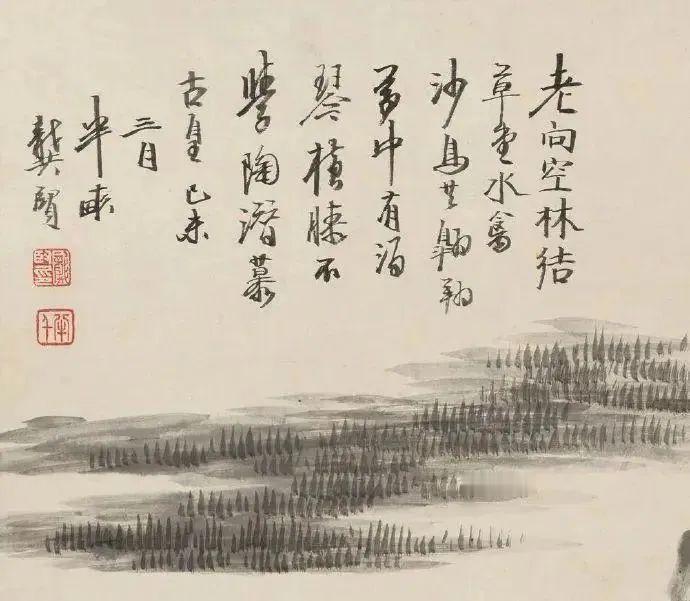 老向空林結
草堂水禽
沙鳥共翱翔
尊中有酒
琴橫膝不
學陶潛慕
古皇 己未
三月
半畝
龔賢
半千